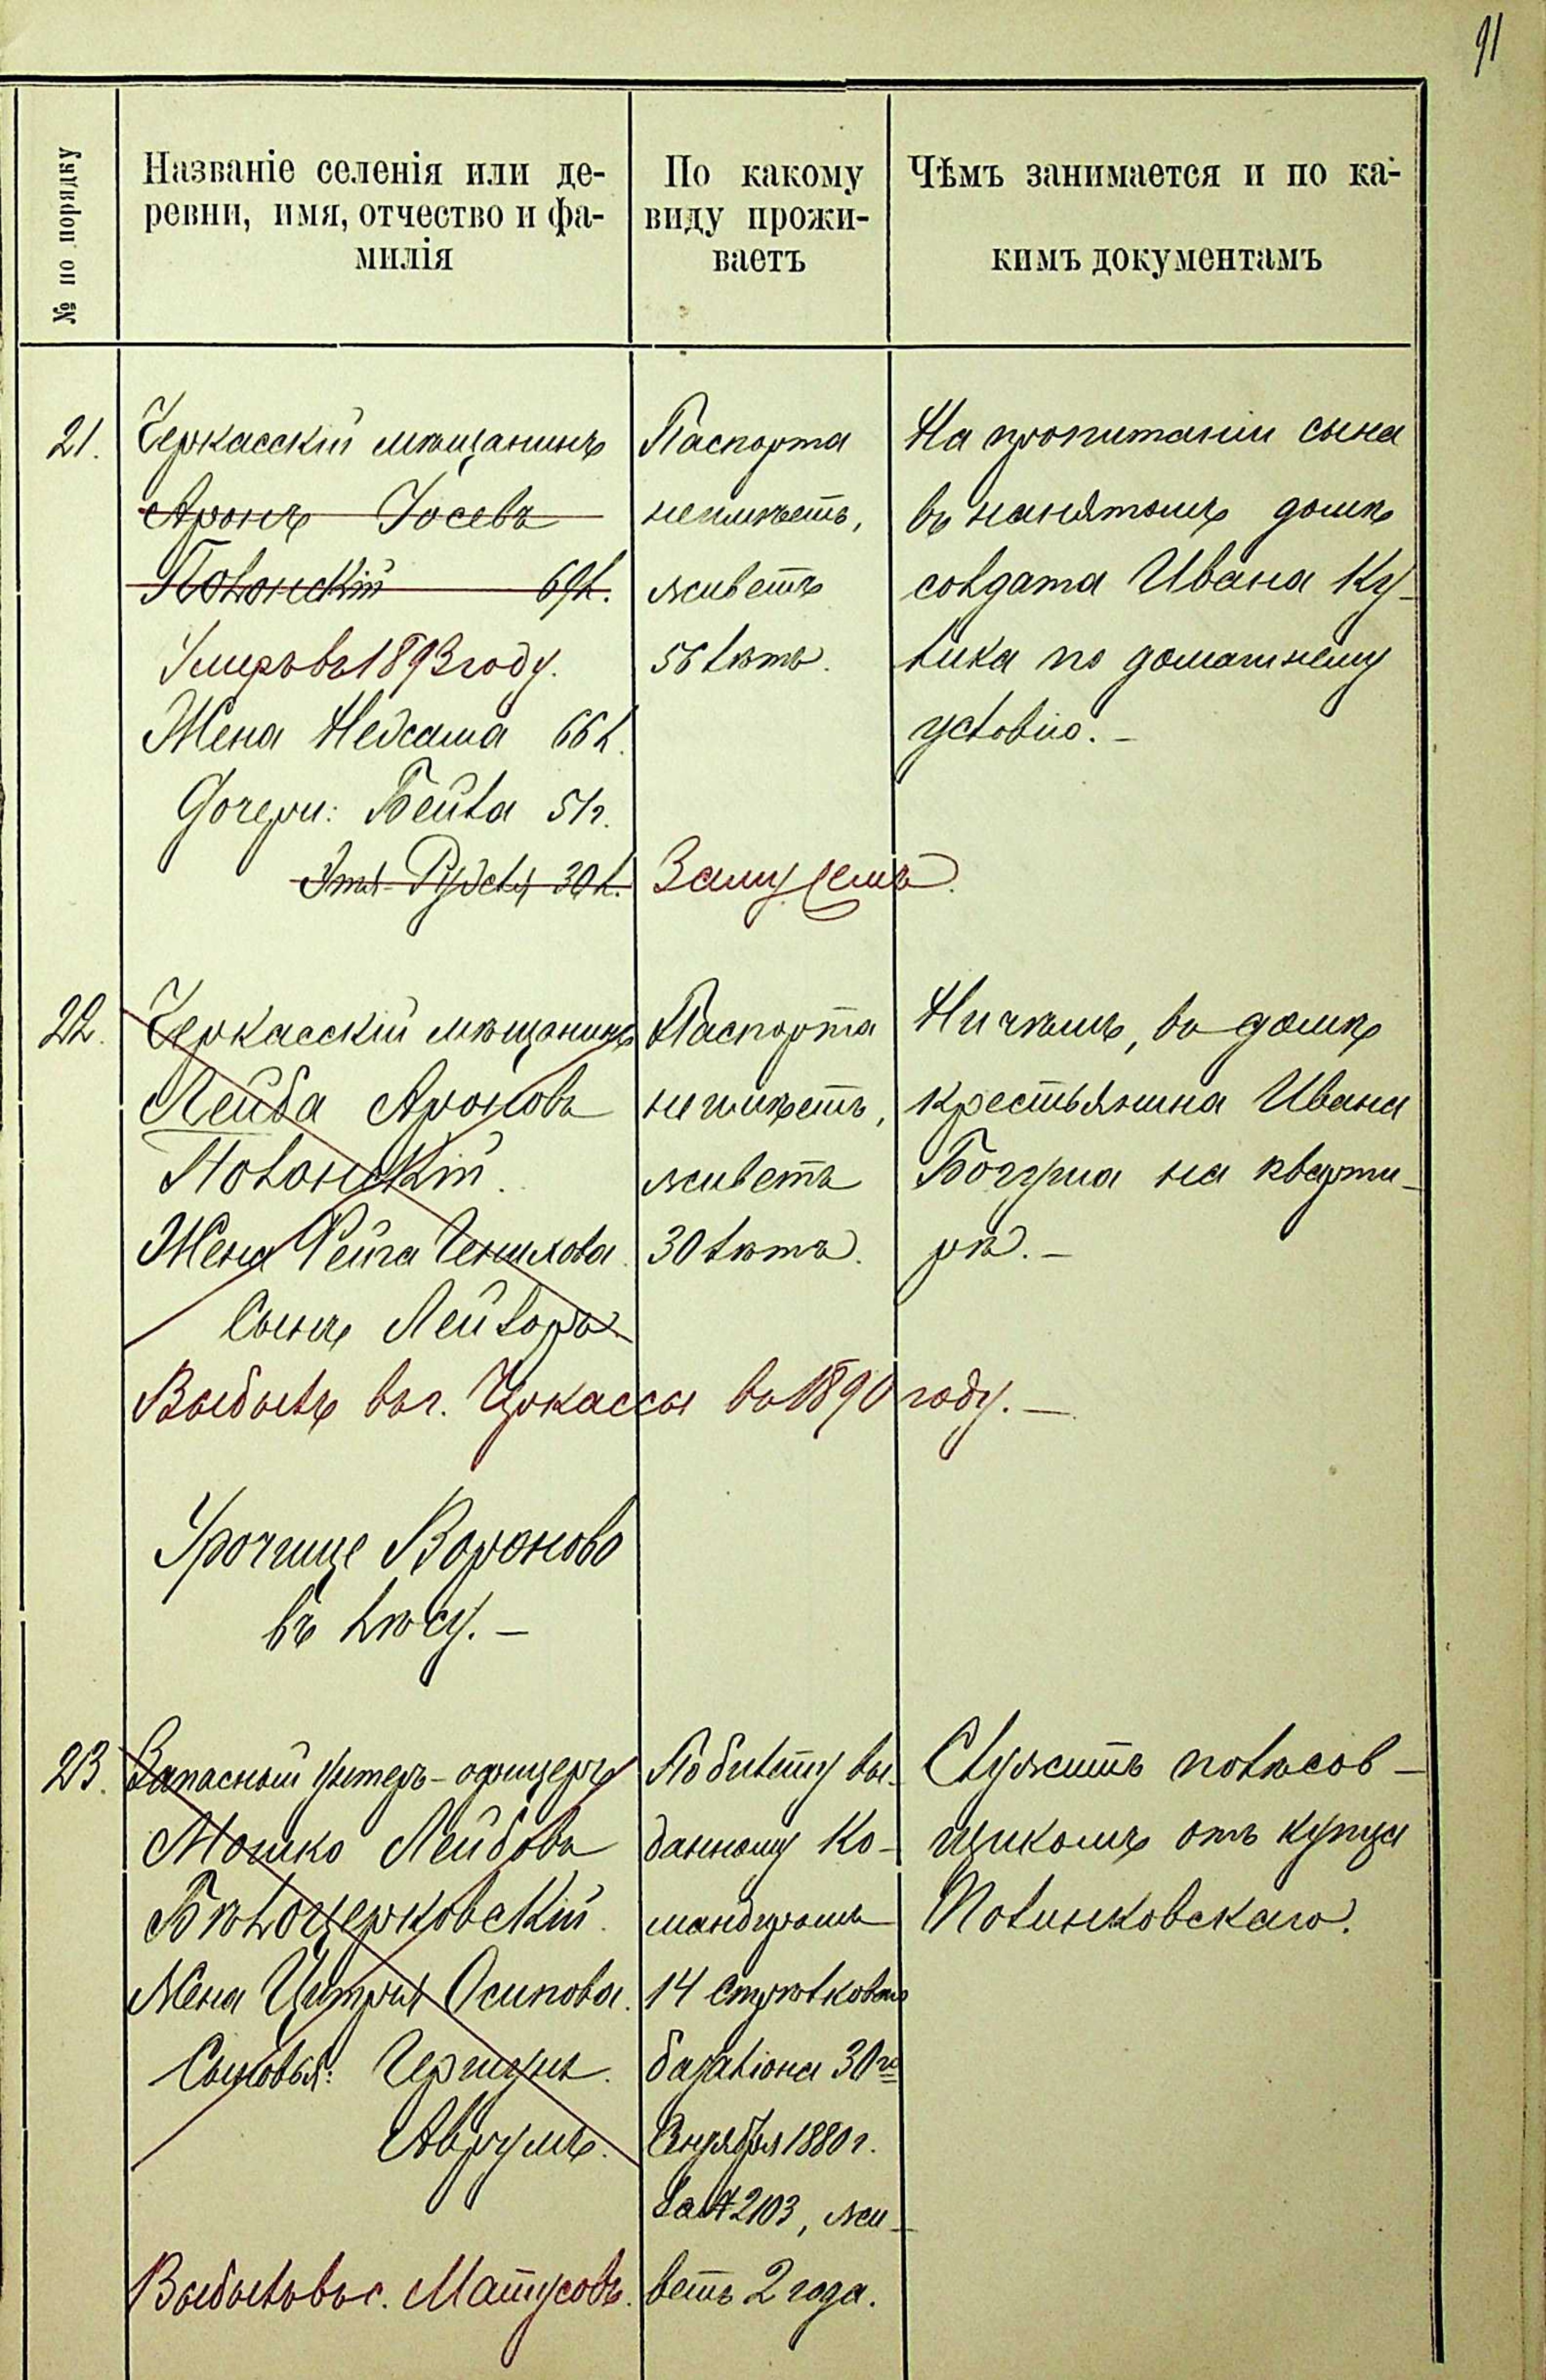 91
№ по порядку
Названіе селенія или де-
ревни, имя, отчество и фа-
милія
По какому
виду прожи-
ваетъ
Чѣмъ занимается и по ка-
кимъ документамъ
21.
Черкасскій мѣщанинъ
Аронъ Іосевъ
Полонскій 69 л.
Умеръ въ 1893 году.
Жена Нехама 66 л.
Дочери: Бейла 5 л.
Паспорта
неимѣетъ,
живетъ
56 лѣтъ.
На пропитаніи сына
въ нанятомъ домѣ
солдата Ивана Ку-
лика по домашнему
условію. –
Замужемъ.
22.
Черкасскій мѣщанинъ
Лейба Ароновъ
Полонскій.
Жена Фейга
Сынъ Лейзоръ
Паспорта
неимѣетъ,
живетъ
30 лѣтъ.
Ничѣмъ, въ домѣ
крестьянина Ивана
на кварти-
рѣ. –
Выбылъ въ г. Черкассы въ 1890 году. –
Урочище Вороново
въ лѣсу. –
23.
Запасный унтеръ-офицеръ
Мошко Лейбовъ
Бѣлоцерковскій.
Жена Осипова.
Сыновья: Гершунъ.
Аврумъ.
Выбылъ въ с. Матусовъ.
По билету вы-
данному Ко-
мандиромъ
14 Стрѣлковаго
баталіона 30го
Сентября 1880 г.
за № 2103, жи-
ветъ 2 года.
Служитъ полѣсов-
щикомъ отъ купца
Полинковскаго.